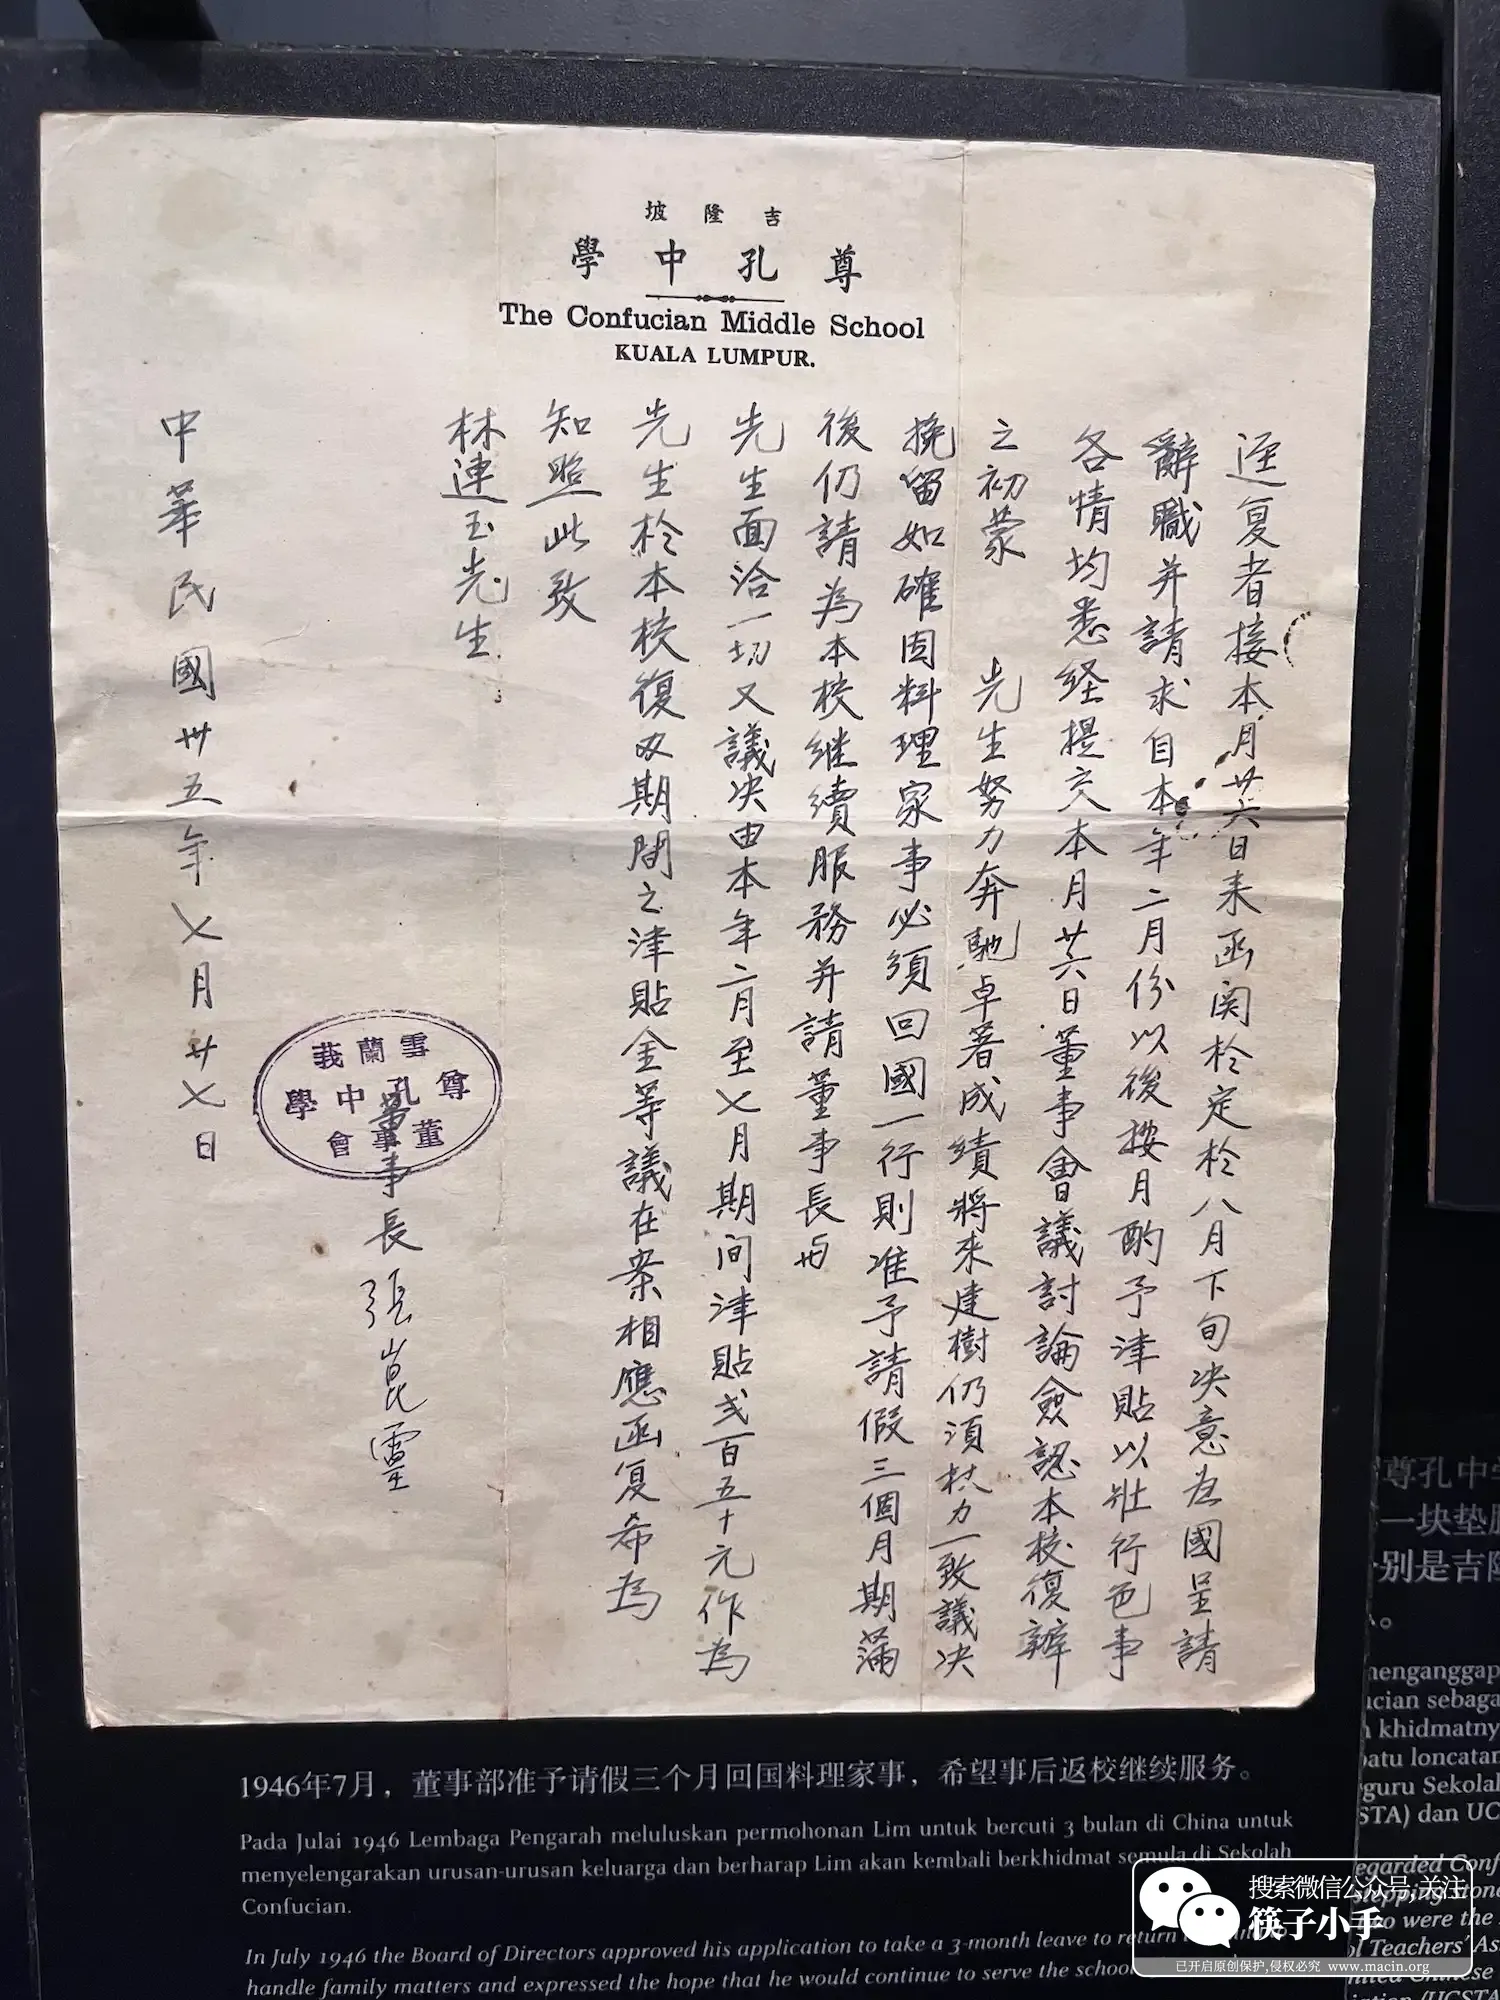 吉隆坡
尊孔中學
The Confucian Middle School
KUALA LUMPUR.
迳复者接本月廿六日来函関於定於八月下旬决意返國呈請
辭職并請求自本年二月份以後按月酌予津貼以壯行色事
各情均悉经提交本月廿六日董事會議討論僉認本校復辦
之初蒙 先生努力奔馳卓著成績將來建樹仍須扶力一致議决
挽留如確因料理家事必須回國一行則准予請假三個月期滿
後仍請為本校继續服務并請董事長与
先生面洽一切又議决由本年二月至七月期间津貼弍百五十元作為
先生於本校復办期間之津貼金等議在案相應函复希為
知照此致
林連玉先生
董事長 張崑靈
雪蘭莪
尊孔中學
董事會
中華民國卅五年七月廿七日
1946年7月，董事部准予请假三个月回国料理家事，希望事后返校继续服务。
Pada Julai 1946 Lembaga Pengarah meluluskan permohonan Lim untuk bercuti 3 bulan di China untuk
menyelengarakan urusan-urusan keluarga dan berharap Lim akan kembali berkhidmat semula di Sekolah
Confucian.
In July 1946 the Board of Directors approved his application to take a 3-month leave to return
handle family matters and expressed the hope that he would continue to serve the school
尊孔中
一块垫
别是吉
menganggap
sebaga
khidmatny
loncatan
guru Sekola
dan UC
Conf
stepping stone
who were the
Teachers' As
Chinese
搜索微信公众号,关注
筷子小手
已开启原创保护,侵权必究 www.macin.org